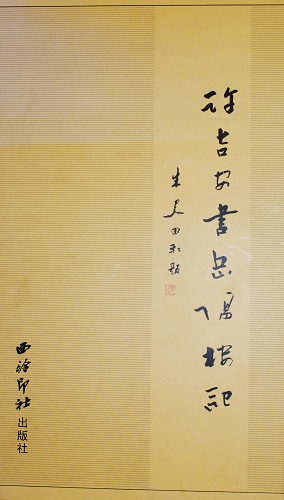 許吉安書岳陽樓記
朱关田題
西泠印社出版社